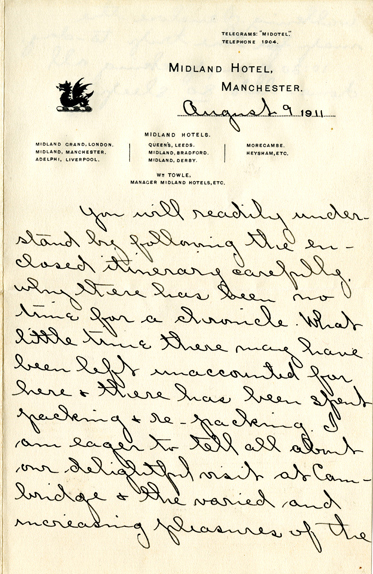 TELEGRAMS: "MIDOTEL,"
TELEPHONE 1904.
MIDLAND HOTEL,
MANCHESTER.
August 9 1911
MIDLAND HOTELS.
MIDLAND GRAND, LONDON.
MIDLAND, MANCHESTER.
ADELPHI, LIVERPOOL.
QUEEN'S, LEEDS.
MIDLAND, BRADFORD.
MIDLAND, DERBY.
MORECAMBE.
HEYSHAM, ETC.
WM TOWLE.
MANAGER MIDLAND HOTELS, ETC.
You will readily under-
stand by following the en-
closed itinerary carefully,
why there has been no
time for a chronicle. What
little time there may have
been left unaccounted for
here & there has been spent
packing & re-packing. I
am eager to tell all about
our delightful visit at Cam-
bridge & the varied and
increasing pleasures of the